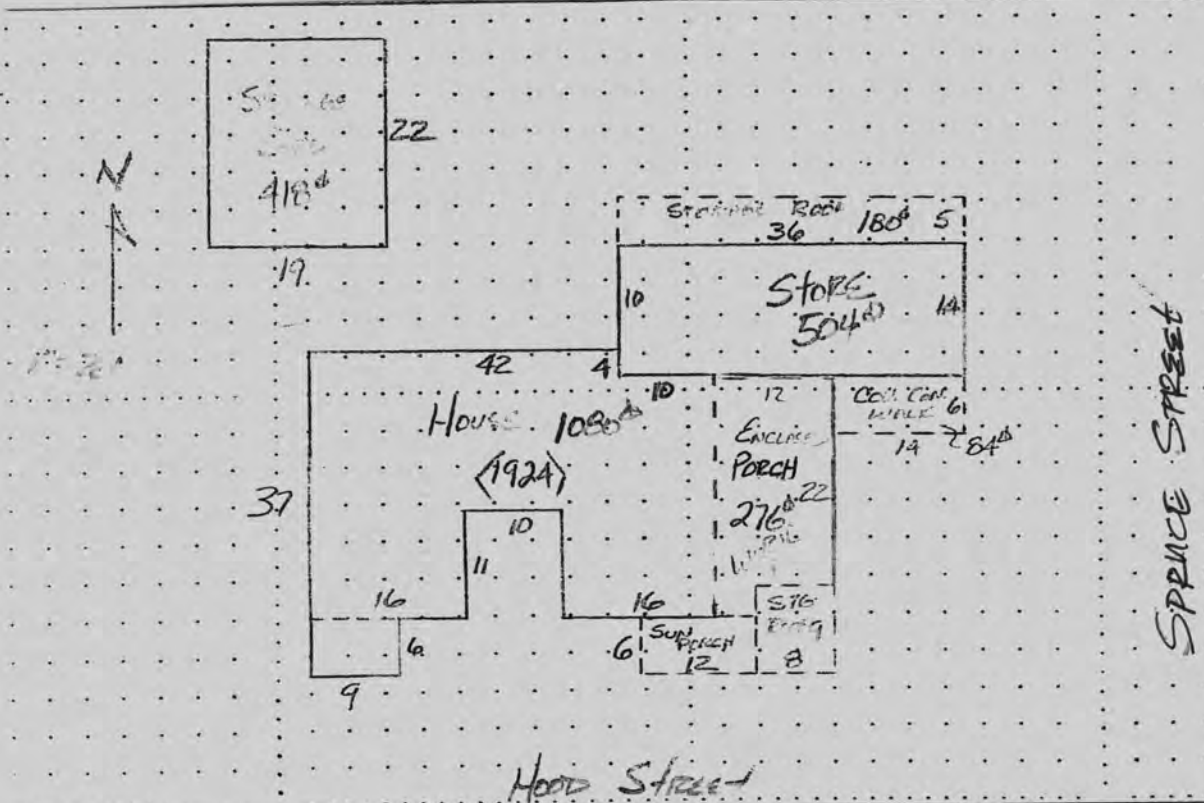 N
22
418
19
STORAGE ROOF
36
180
5
10
STORE
504
14
42
4
10
12
6
14
84
HOUSE
1080
<1924>
ENCLOSED
PORCH
276
22
37
10
11
16
16
6
9
6
SUN
PORCH
12
STG
9
8
HOOD STREET
SPRUCE STREET